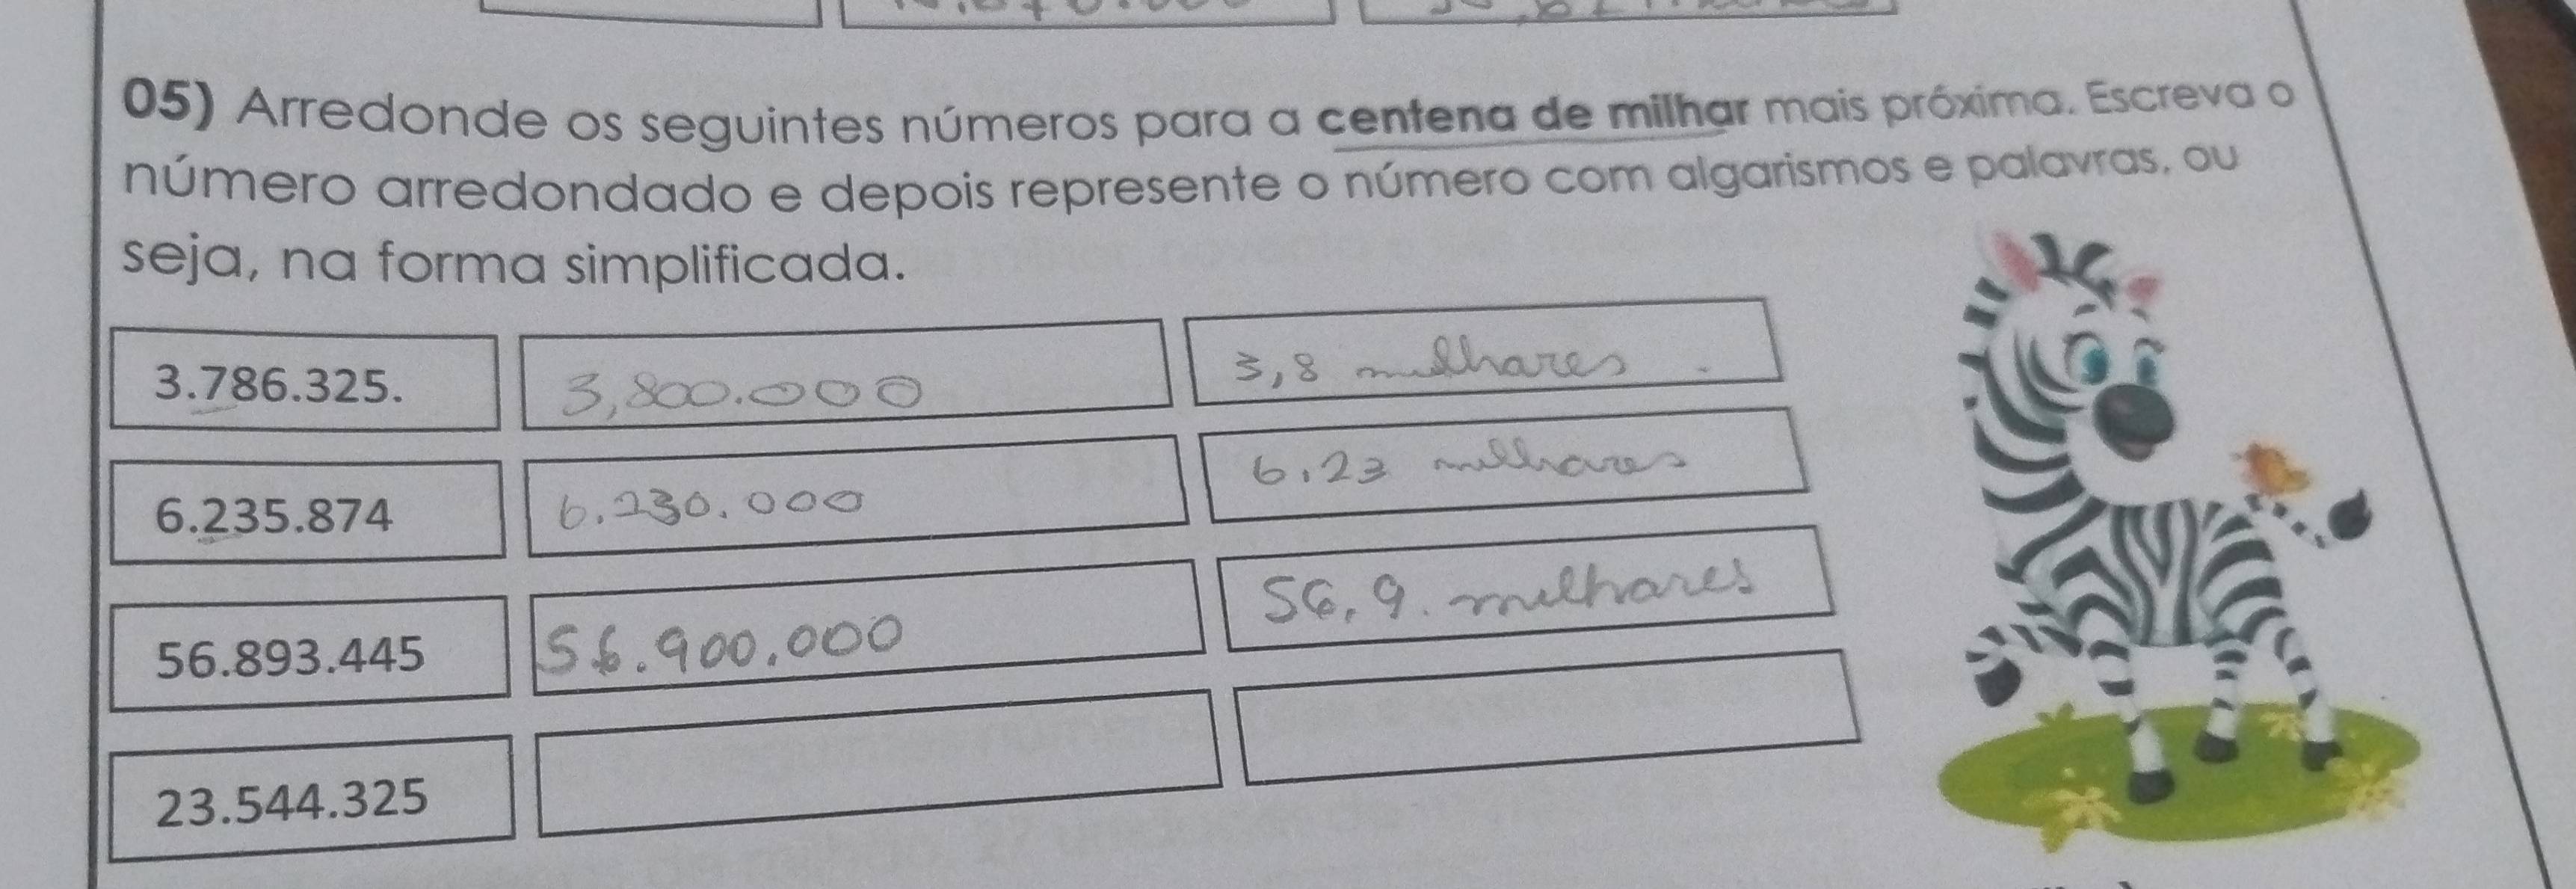 05) Arredonde os seguintes números para a centena de milhar mais próxima. Escreva o
número arredondado e depois represente o número com algarismos e palavras, ou
seja, na forma simplificada.
3.786.325. 3,800.000 3,8 milhares .
6.235.874 6.230.000 6.23 milhares
56.893.445 56.900.000 56,9. milhares
23.544.325